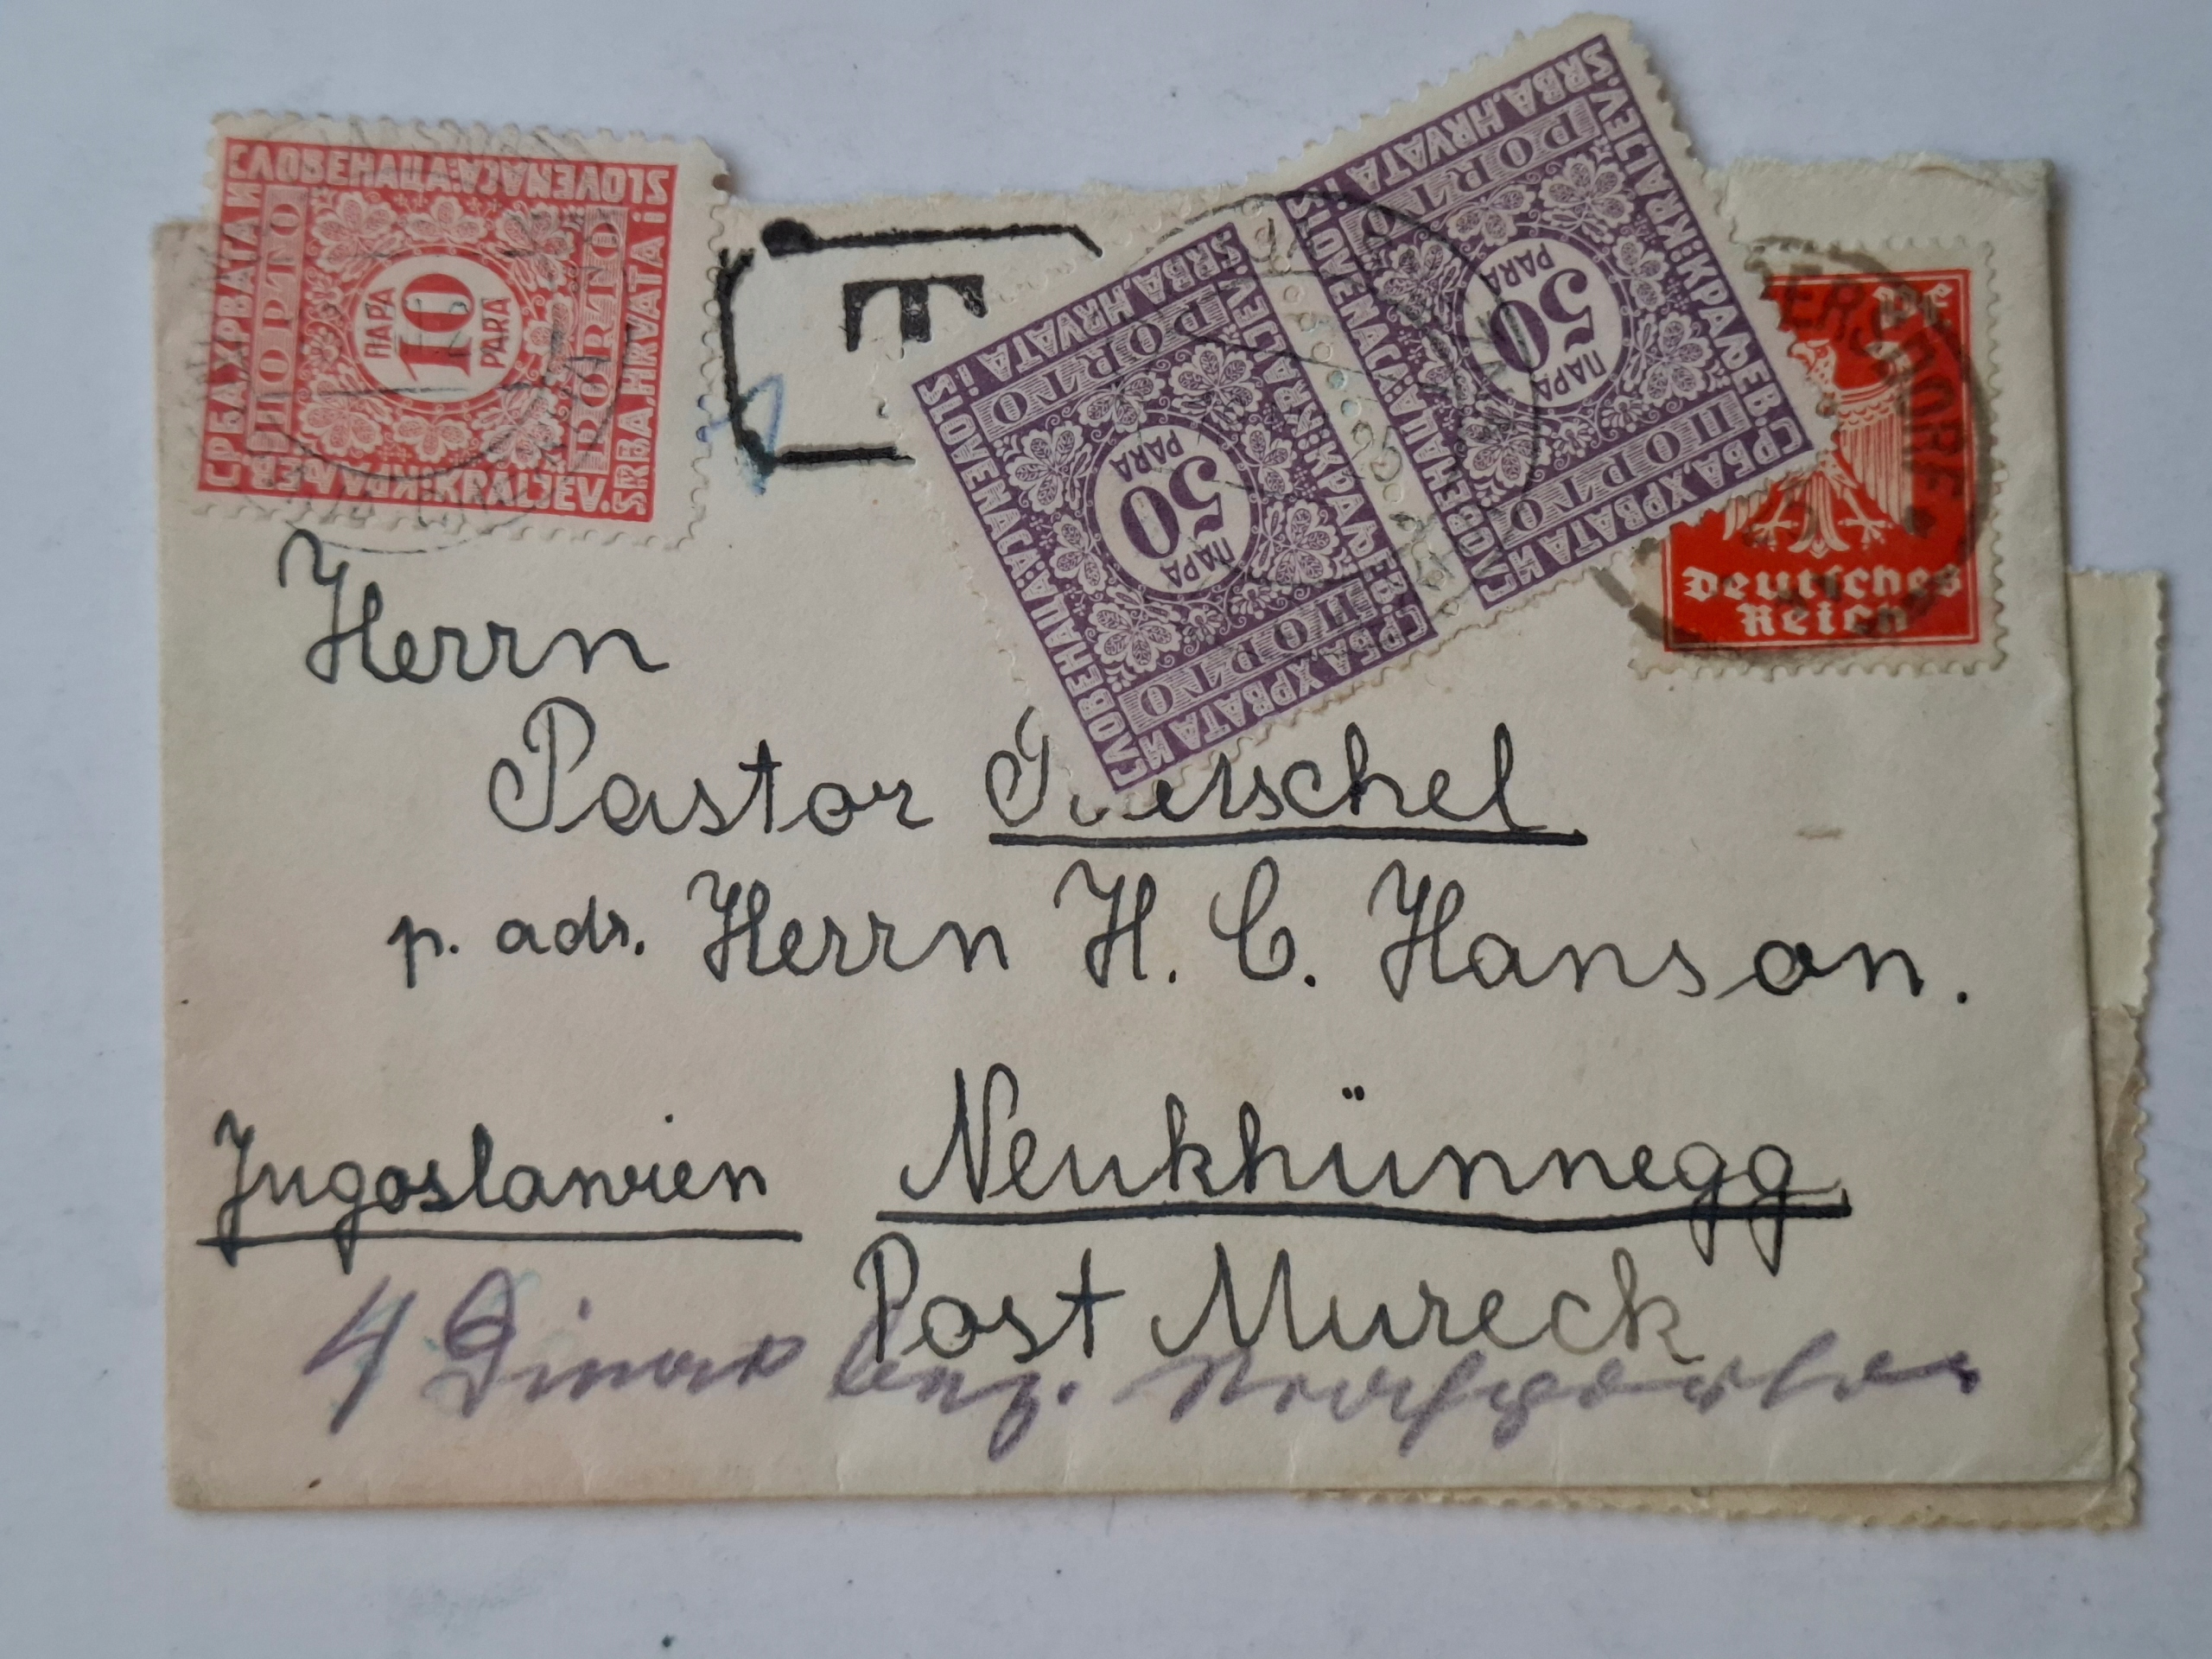 СЛОВЕНАЦА:SLOVENACA
СРБА,ХРВАТА И
ПОРТО
ПАРА
10
PARA
PORTO
SRBA,HRVATA i
КРАЉЕВ.:KRALJEV.
T
SLOVENACA:СЛОВЕНАЦА
SRBA,HRVATA i
PORTO
PARA
50
ПАРА
ПОРТО
СРБА,ХРВАТА И
KRALJEV.:КРАЉЕВ.
SLOVENACA:СЛОВЕНАЦА
SRBA,HRVATA i
PORTO
PARA
50
ПАРА
ПОРТО
СРБА,ХРВАТА И
KRALJEV.:КРАЉЕВ.
Deutsches
Reich
Herrn
Pastor
p. adr. Herrn H. C. Hanson.
Jugoslawien Neukhünnegg
Post Mureck
4 Dinar bez.